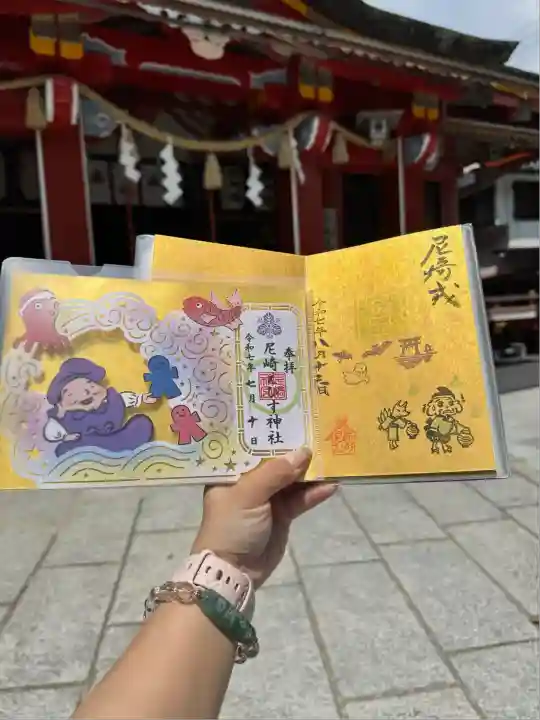 奉拝
尼崎えびす神社
令和七年 七月 十日
尼崎戎
令和七年八月十三日